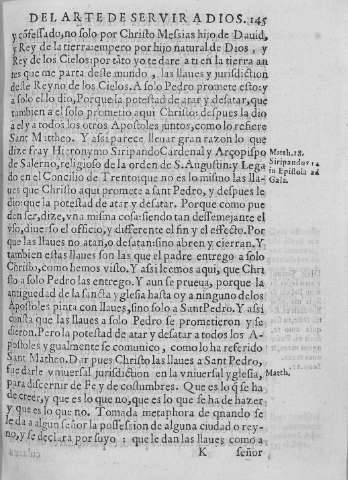 DEL ARTE DE SERVIR A DIOS. 145
y cõfessado, no solo por Christo Messias hijo de Dauid,
y Rey de la tierra: empero por hijo natural de Dios, y
Rey de los Cielos: por tãto yo te dare a ti en la tierra an
tes que me parta deste mundo, las llaues y jurisdiction
deste Reyno de los Cielos. A solo Pedro promete esto: y
a solo el lo dio, Porque la potestad de atar y desatar, que
tambien a el solo prometio aqui Christo: despues la dio
a el y a todos los otros Apostoles juntos, como lo refiere
Sant Mattheo. Y assi parece lleuar gran razon lo que
dize fray Hieronymo Siripando Cardenal y Arçopispo
de Salerno, religioso de la orden de S. Augustin: y Lega
do en el Concilio de Trento: que no es lo mismo las lla-
ues que Christo aqui promete a sant Pedro, y despues le
dio: que la potestad de atar y desatar. Porque como pue
den ser, dize, vna misma cosa: siendo tan dessemejante el
vso, diuerso el officio, y differente el fin y el effecto. Por
que las llaues no atan, o desatan: sino abren y cierran. Y
tambien estas llaues son las que el padre entrego a solo
Christo, como hemos visto. Y assi leemos aqui, que Chri
sto a solo Pedro las entrego. Y aun se prueua, porque la
antiguedad de la sancta yglesia hasta oy a ninguno de los
Apostoles pinta con llaues, sino solo a Sant Pedro. Y assi
consta que las llaues a solo Pedro se prometieron y se
dieron. Pero la potestad de atar y desatar a todos los A-
postoles ygualmente se comunico, como lo ha referido
Sant Matheo. Dar pues Christo las llaues a Sant Pedro,
fue darle vniuersal jurisdiction en la vniuersal yglesia,
para discernir de Fe y de costumbres. Que es lo q̃ se ha
de creer, y que es lo que no, que es lo que se ha de hazer
y que es lo que no. Tomada metaphora de quando se
le da a algun señor la possession de alguna ciudad o rey-
no, y se declara por suyo: que le dan las llaues como a
K señor
Matth. 18.
Siripandos
in Epistola ad
Gala.
Matth.